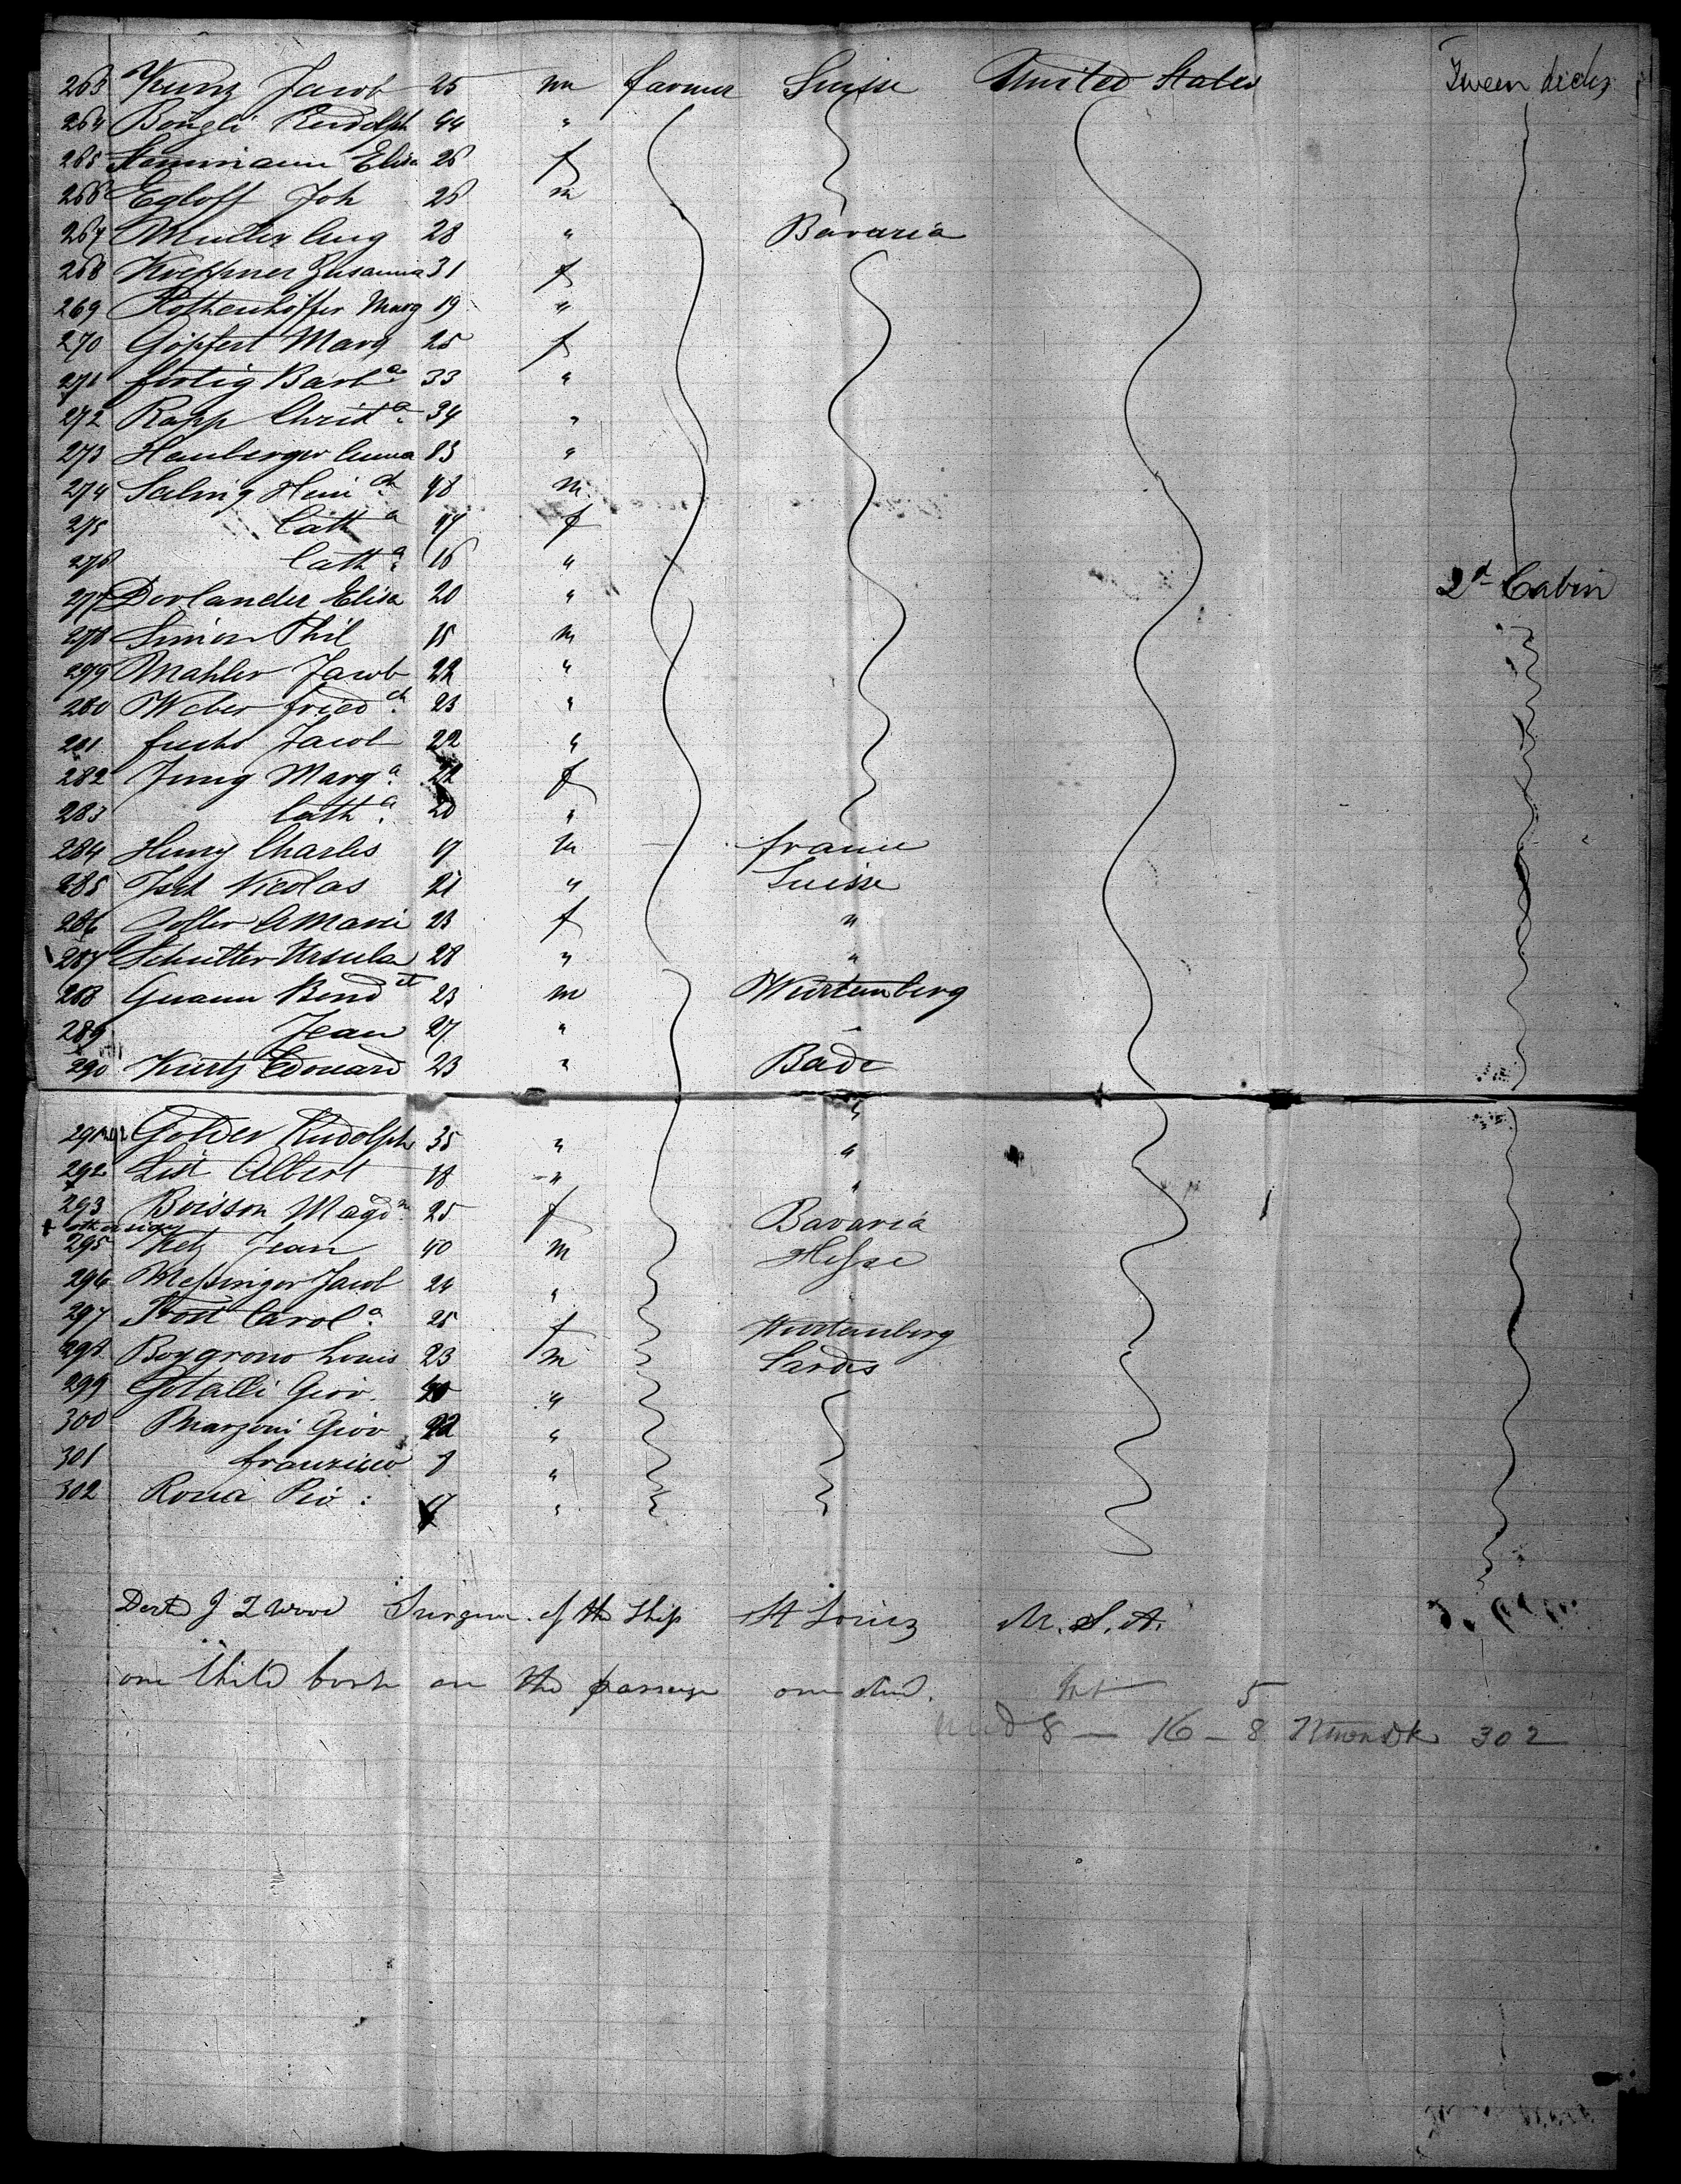 263 Kunz Jacob 25 m farmer Suisse United States Tween decks
264 Bönzli Rudolph 44 "
265 Elisa 26 f
266 Egloff Joh 26 m
267 Muller Aug 28 " Bavaria
268 Koeppner Zusanna 31 f
269 Rothenhöffer Marg 19 "
270 Göpfert Marg 25 f
271 fertig Barba 33 "
272 Rapp Christa 34 "
273 Hauberger Anna 33 "
274 Heinch 48 m
275 Catha 47 f
276 Catha 16 "
277 Dorlander Elisa 20 " 2d Cabin
278 Simon Phil 15 m
279 Mahler Jacob 22 "
280 Weber friedch 23 "
281 fuchs Jacob 22 "
282 Jung Marga 22 f
283 Catha 20 "
284 Henry Charles 17 m france
285 Nicolas 21 " Suisse
286 Zoller A Marie 23 f "
287 Schutter Ursula 28 " "
288 Gnann Bendit 23 m Wurtemberg
289 Jean 27 " "
290 Kurtz Edouard 23 " Bade
291 Golder Rudolph 35 " "
292 List Albert 18 " "
293 Boisson Magdna 25 f Bavaria
295 Ketz Jean 40 m Hesse
296 Messinger Jacob 24 "
297 Trost Carola 25 f Wurtemberg
298 Boygrono Louis 23 m Sardes
299 Gotalli Giov. "
300 Marzoni Giov 22 "
301 franzisco "
302 Pio : "
J Wood Surgeon of the Ship St Louis U. S. A.
one Child born on the passage one died.
5
8 — 16 — 8 302